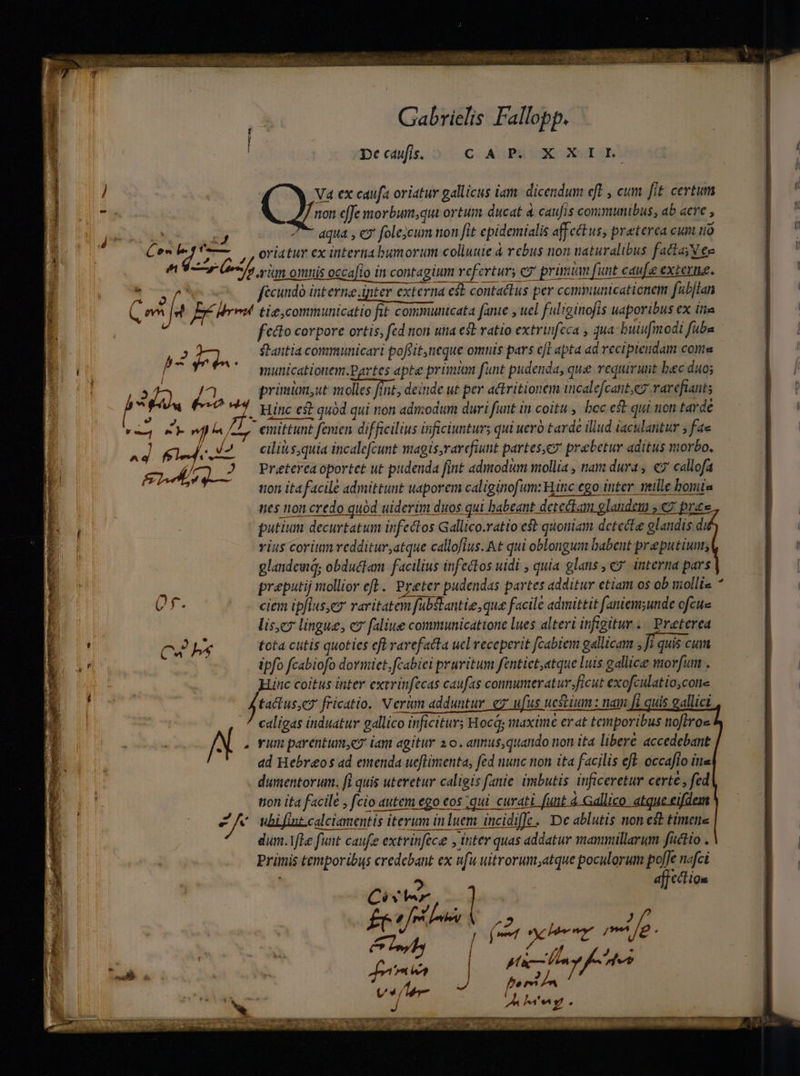 Gabrielis Fallopp.
De causis. C A P. X X I I.
QVa ex causa oriatur gallicus iam dicendum est, cum sit certum
non esse morbum, qui ortum ducat à causis communibus, ab aere,
aqua, & sole, cum non sit epidemialis affectus, præterea cum nō
oriatur ex interna humorum colluuie à rebus non naturalibus facta; Ve=
rùm omnis occasio in contagium refertur, & primùm sunt causæ externæ.
secundò internæ. inter externa est contactus per communicationem substan
tiæ, communicatio fit communicata sanie, uel fuliginosis uaporibus ex in=
fecto corpore ortis, sed non una est ratio extrinseca, qua huiusmodi sub=
stantia communicari possit, neque omnis pars est apta ad recipiendam com=
municationem. Partes aptæ primùm sunt pudenda, quæ requirunt hæc duo;
primùm, ut molles sint, deinde ut per attritionem incalescant, & rarefiant;
Hinc est quòd qui non admodum duri sunt in coitu, hoc est qui non tardè
emittunt semen difficilius inficiuntur; qui uerò tardè illud iaculantur, fa=
cilius, quia incalescunt magis, rarefiunt partes, & præbetur aditus morbo.
Præterea oportet ut pudenda sint admodùm mollia, nam dura, & callosa
non ita facilè admittunt uaporem caliginosum: Hinc ego inter mille homi=
nes non credo quòd uiderim duos qui habeant detectam glandem, & præ=
putium decurtatum infectos Gallico. ratio est quoniam detectæ glandis du=
rius corium redditur, atque callosius. At qui oblongum habent præputium,
glandemq; obductam facilius infectos uidi, quia glans, & interna pars
præputij mollior est. Præter pudendas partes additur etiam os ob molli=
ciem ipsius, & raritatem substantiæ, quæ facilè admittit saniem; unde oscu=
lis, & linguæ, & saliuæ communicatione lues alteri infigitur. Præterea
tota cutis quoties est rarefacta uel receperit scabiem gallicam, si quis cum
ipso scabioso dormiet, scabiei pruritum sentiet, atque luis gallicæ morsum.
Hinc coitus inter extrinsecas causas connumeratur, sicut exosculatio, con=
tactus, & fricatio. Verùm adduntur & usus uestium: nam si quis gallici
caligas induatur gallico inficitur; Hocq; maximè erat temporibus nostro=
rum parentum, & iam agitur 20. annus, quando non ita liberè accedebant
ad Hebræos ad emenda uestimenta, sed nunc non ita facilis est occasio in=
dumentorum. si quis uteretur caligis sanie imbutis inficeretur certè, sed
non ita facilè, scio autem ego eos qui curati sunt à Gallico atque eisdem
ubi sint calciamentis iterum in luem incidisse. De ablutis non est timen=
dum. Istæ sunt causæ extrinsecæ, inter quas addatur mammillarum suctio.
Primis temporibus credebant ex usu uitrorum, atque poculorum posse nasci
affectio=
Os.